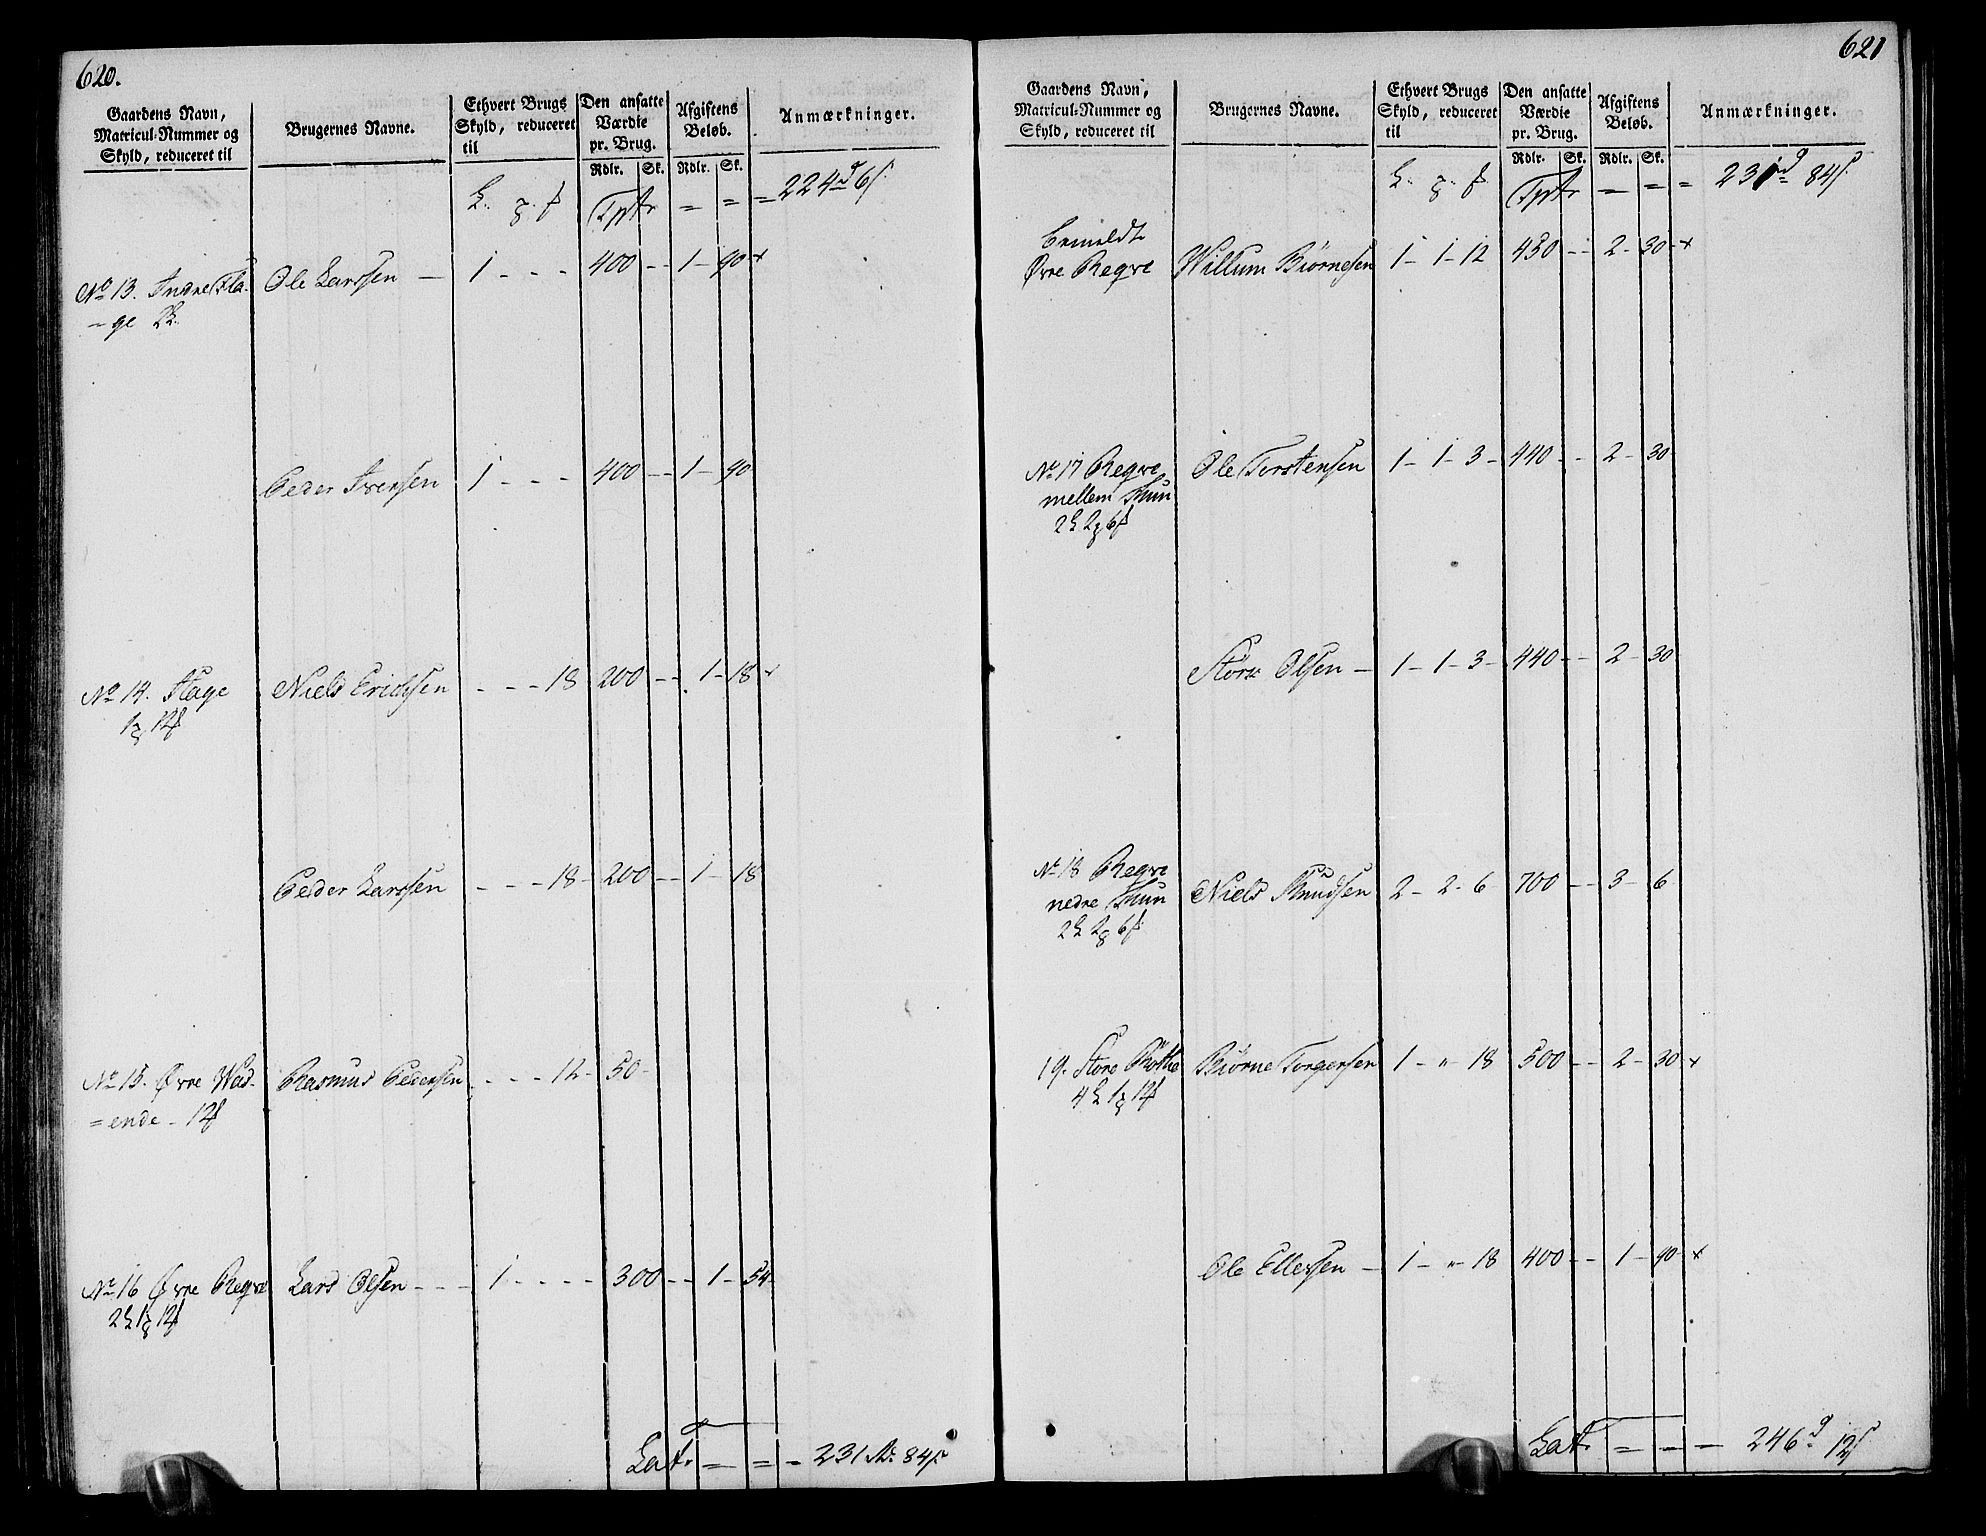 620.
Gaardens Navn, Matricul-Nummer og Skyld, reduceret til
Brugernes Navne.
Ethvert Brugs Skyld, reduceret til
Den ansatte Værdie pr. Brug.
Afgiftens Beløb.
Anmærkninger.
Rdlr. Sk. Rdlr. Sk.
Tptr = = = 224 6
No 13. Indre Fla- Ole Larssen — 1 - - - 400 -- 1 - 90 +
- ge 2
Peder Iversen 1 - - - 400 -- 1 - 90
No 14. Flage Niels Erichsen - - - 18 200 -- 1 - 18 +
Peder Larssen - - - 18 - 200 -- 1 - 18
No 15. Øvre Wad- Rasmus Pedersen - - - 12 - 50 -
= ende - 12
No 16 Øvre Reqve Lars Olsen - - - 1 - - - - 300 -- 1 - 54
Lat. = = - 231 84
621
Gaardens Navn, Matricul-Nummer og Skyld, reduceret til
Brugernes Navne.
Ethvert Brugs Skyld, reduceret til
Den ansatte Værdie pr. Brug.
Afgiftens Beløb.
Anmærkninger.
Rdlr. Sk. Rdlr. Sk.
Tptr = = = 231 84
bemeldt
Øvre Reqve Willum Biørnesen 1 - 1 - 12 450 -- 2 - 30 - +
No 17 Reqve Ole Torstensen 1 - 1 - 3 - 440 -- 2 - 30
mellem Thun
2 2 6
Olsen — 1 - 1 - 3 - 440 -- 2 - 30
No 18 Reqve
nedre Thun Niels Knudsen 2 - 2 - 6 700 -- 3 - 6
2 2 6
19. Store Røthe Biørne Torgersen 1 - " - 18 500 -- 2 - 30 +
4 1 12
Ole Ellefsen — 1 - " - 18 400 -- 1 - 90 - +
Lat. = — — 246 12